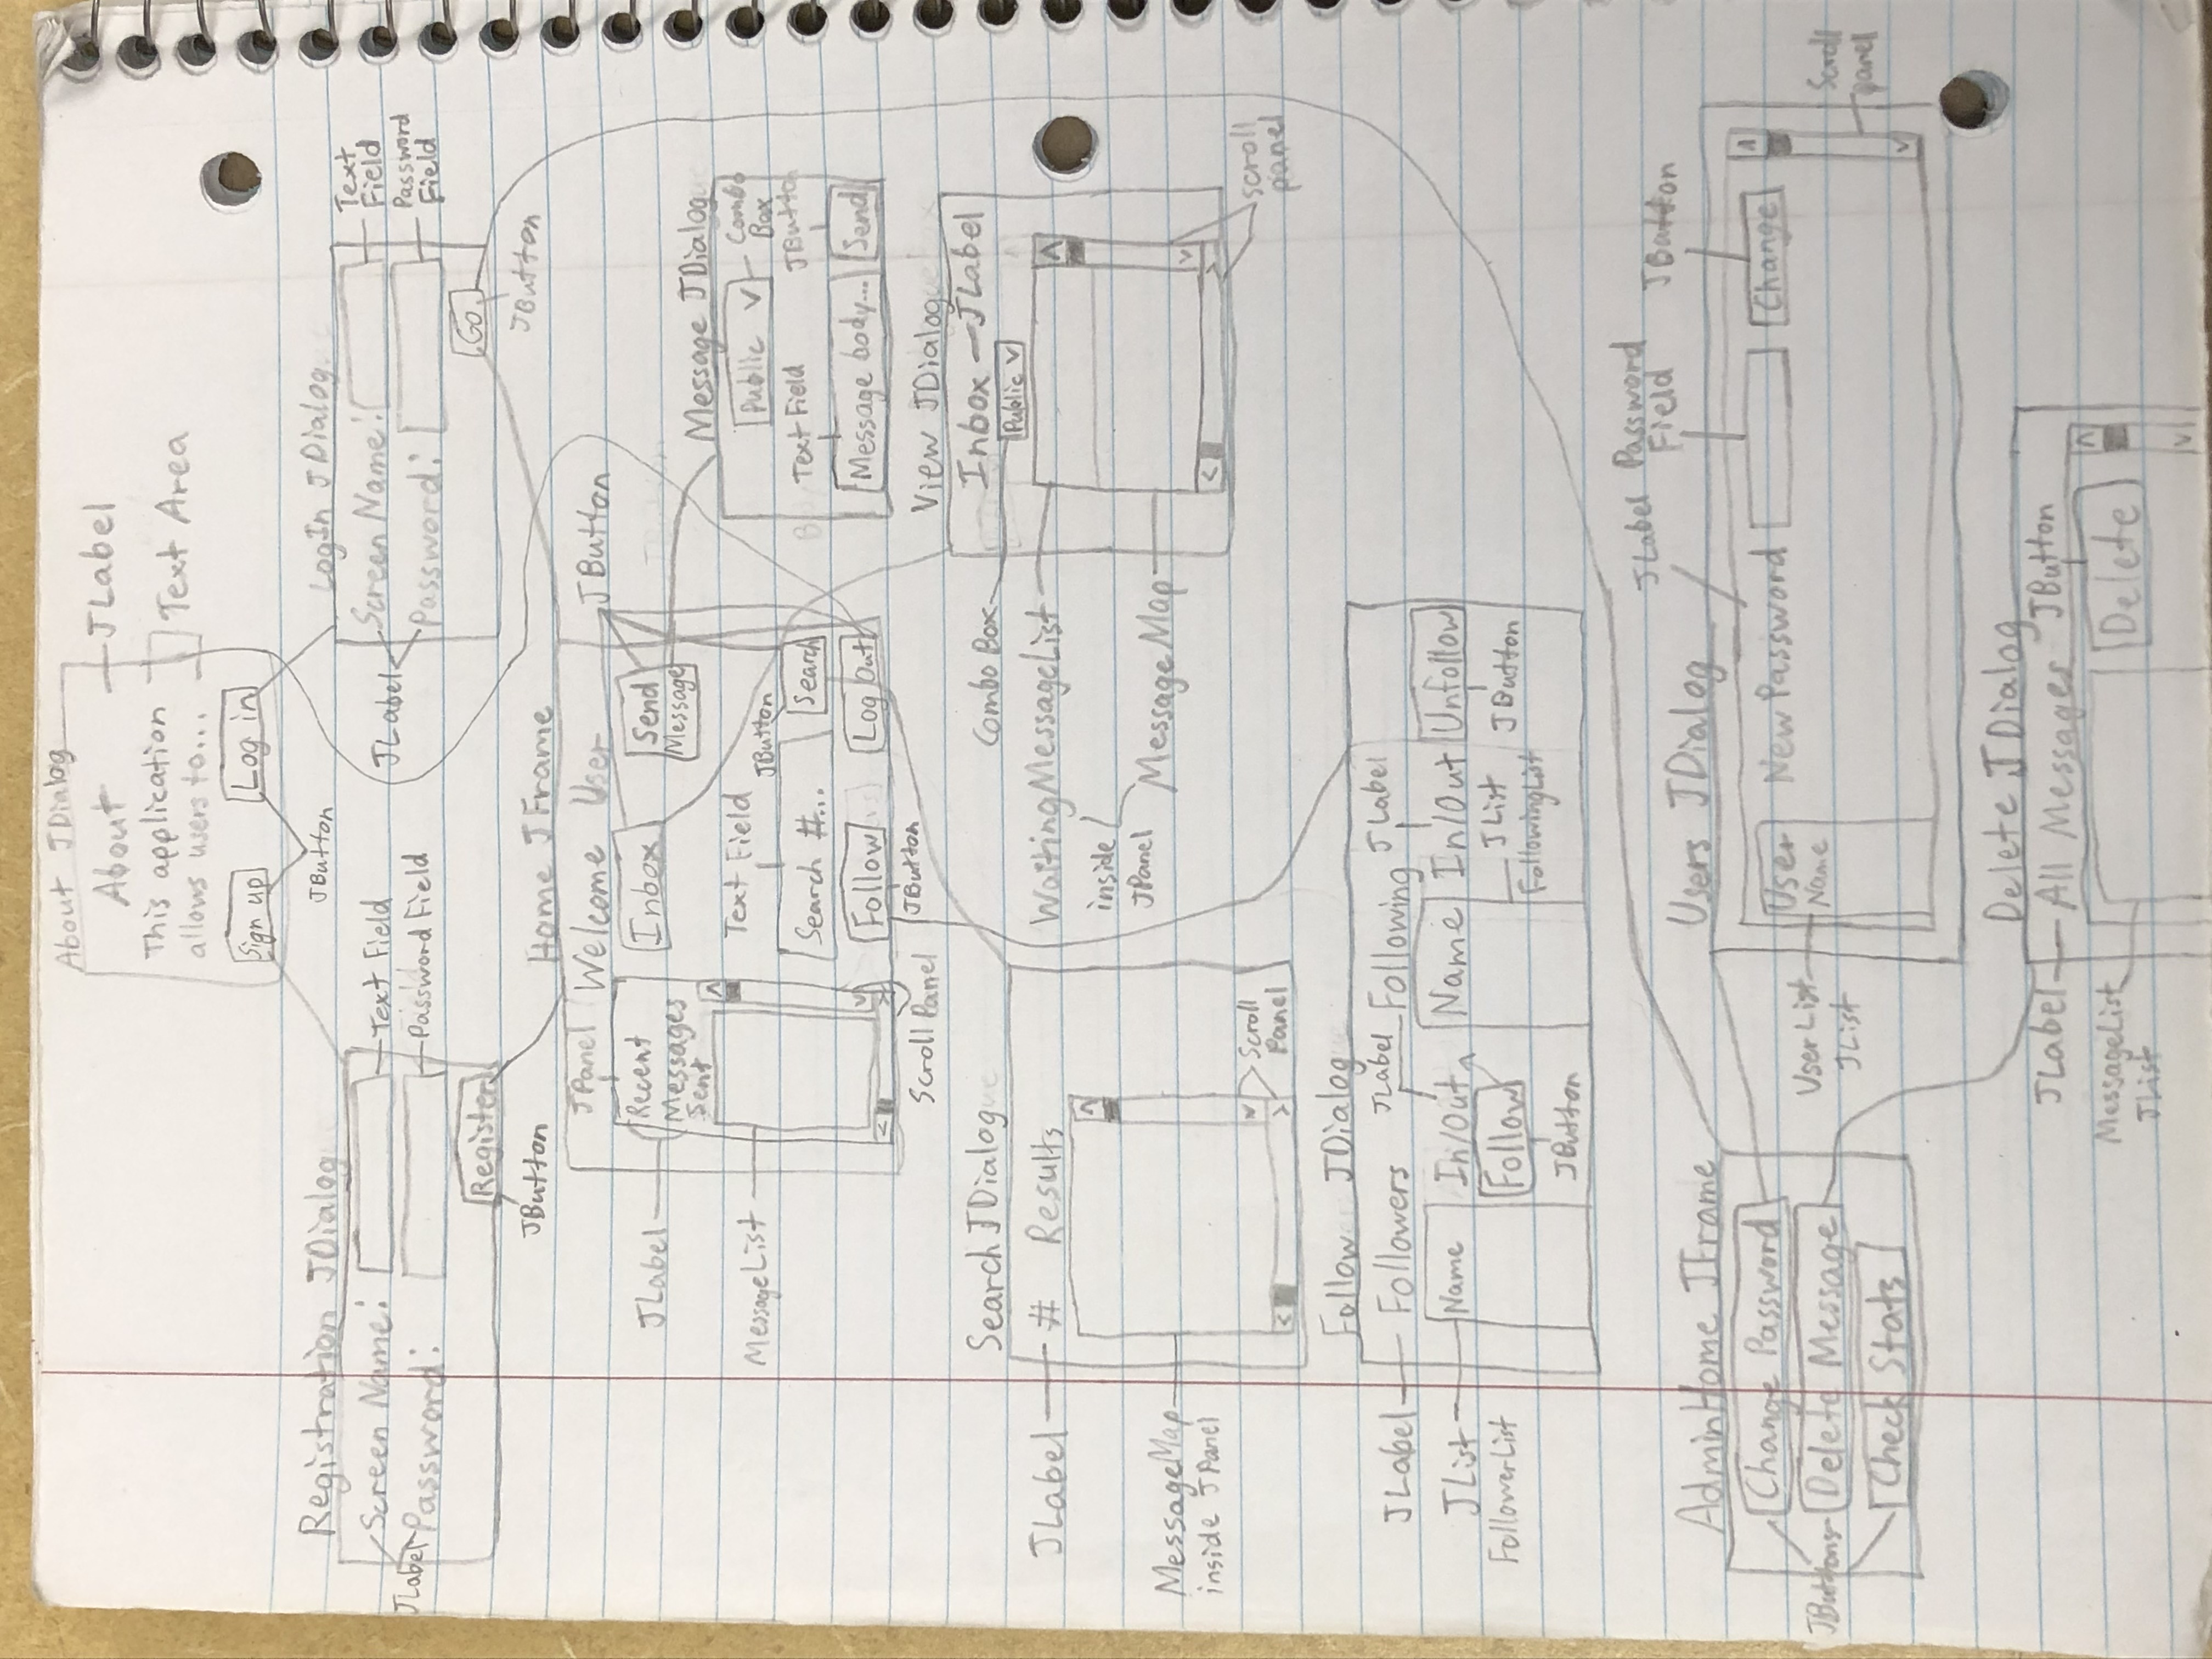 About JDialog
About
JLabel
This application
allows users to...
Text Area
Sign up
Log in
JButton
Registration JDialog
Screen Name:
Text Field
JLabel
Password:
Password Field
Register
JButton
LogIn JDialog
Screen Name:
Text
Field
JLabel
Password:
Password
Field
Go
JButton
Home JFrame
JPanel
Welcome User
JButton
JLabel
Recent
Messages
Sent
Inbox
Send
Message
MessageList
Text Field
JButton
Search #...
Search
Follow
Log Out
JButton
Scroll Panel
Message JDialog
Public V
Combo
Box
Text Field
JButton
Message body...
Send
View JDialog
Inbox
JLabel
Combo Box
Public V
WaitingMessageList
inside
JPanel
MessageMap
scroll
panel
Search JDialog
JLabel
# Results
MessageMap
inside JPanel
Scroll
Panel
Follow JDialog
JLabel
Followers
JLabel
Following
JLabel
JList
FollowerList
Name
In/Out
Follow
JButton
Name
In/Out
JList
FollowingList
Unfollow
JButton
AdminHome JFrame
Change Password
JButtons
Delete Message
Check Stats
Users JDialog
JLabel
Password
Field
JButton
User
Name
New Password
Change
UserList
JList
Scroll
panel
Delete JDialog
JLabel
All Messages
JButton
MessageList
JList
Delete